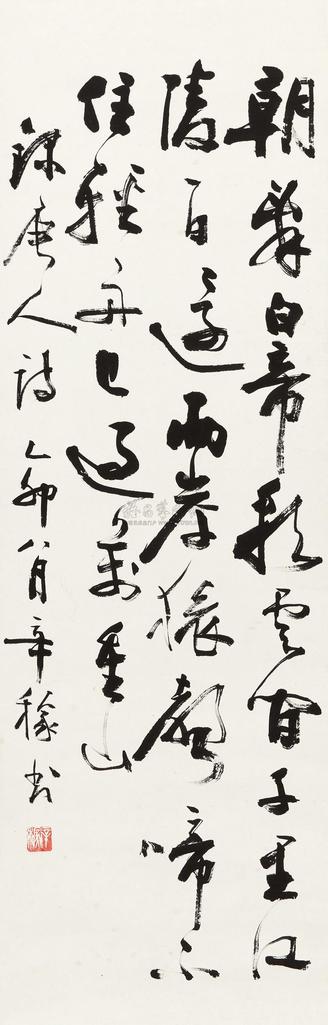 朝辞白帝彩云间千里江
陵一日还两岸猿声啼不
住轻舟已过万重山
录唐人诗乙卯八月辛稼书